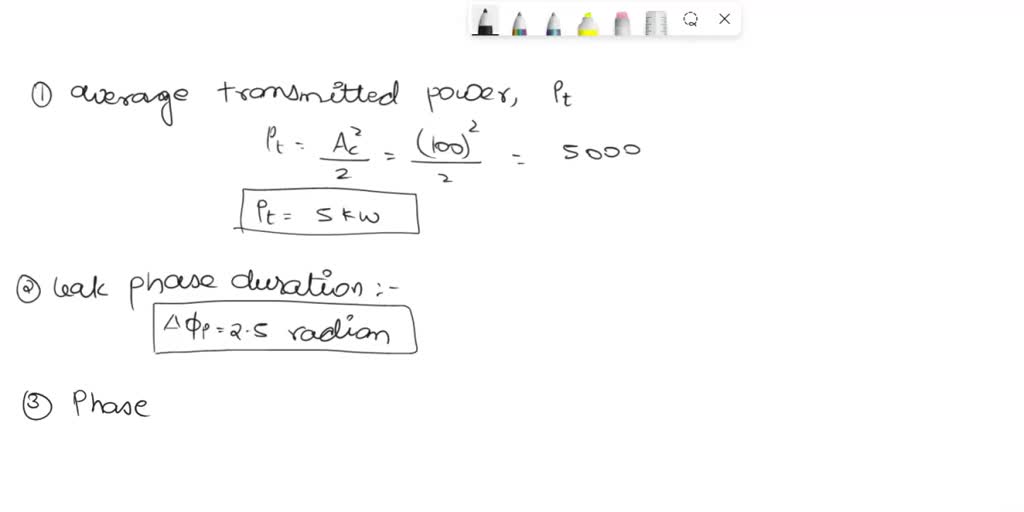 ① average transmitted power, Pt
Pt = Ac²/2 = (100)²/2 = 5000
Pt = 5 kW
② leak phase duration :-
Δϕp = 2.5 radian
③ Phase